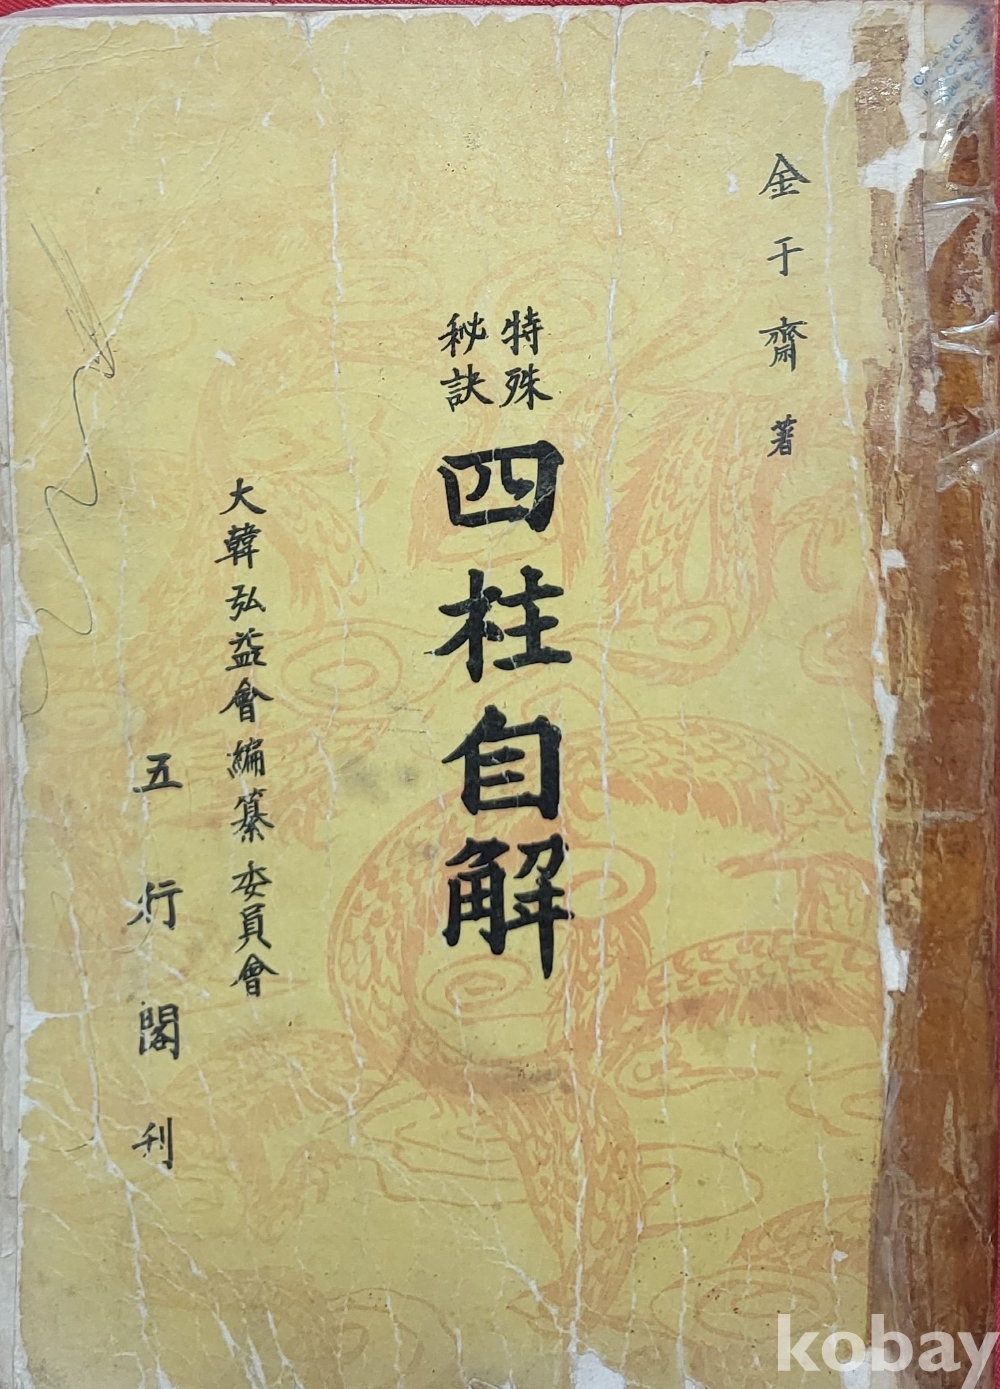 金于齋 著
特殊
秘訣
四柱自解
大韓弘益會編纂委員會
五行閣刊
kobay